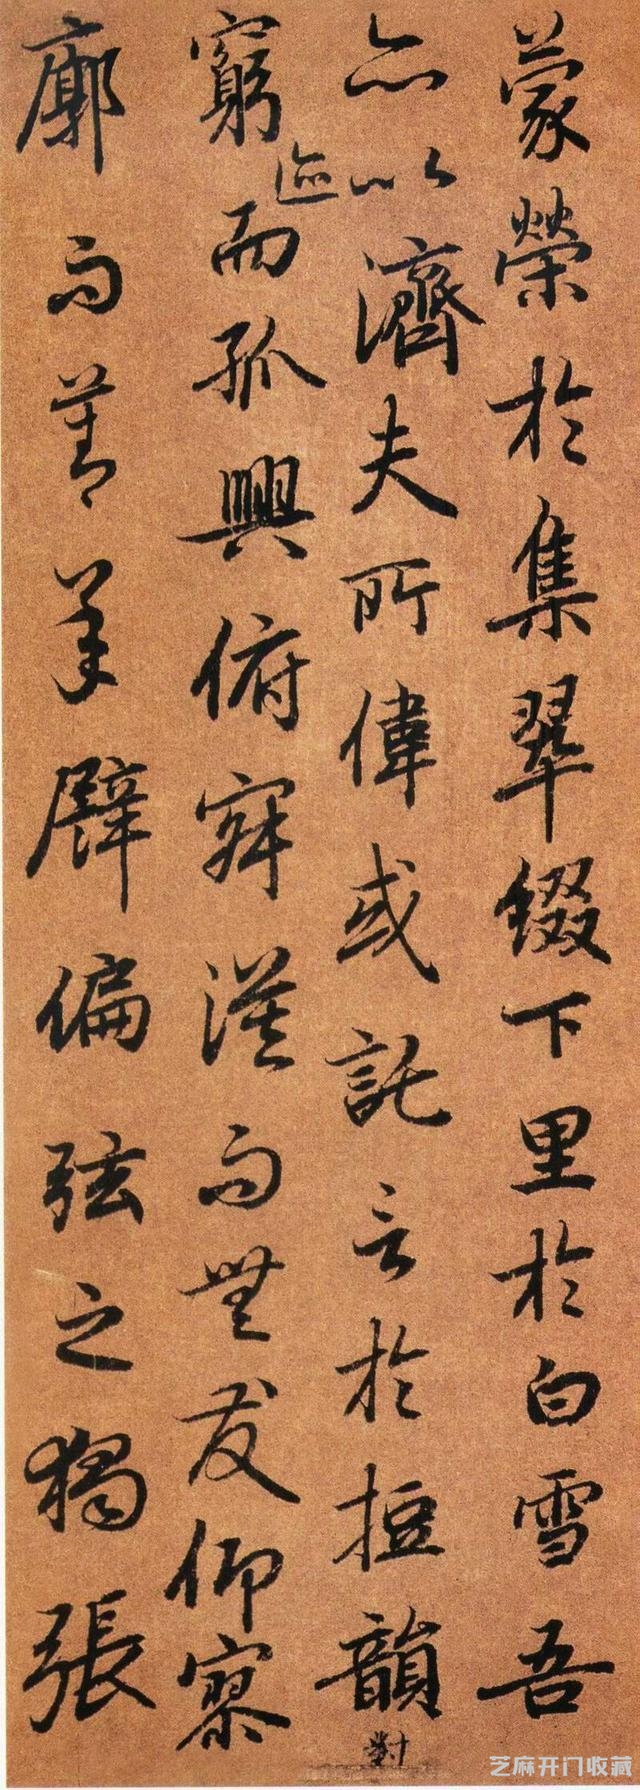 蒙榮於集翠綴下里於白雪吾
亦以濟夫所偉或託言於短韻對
窮迹而孤興俯寂漠而無友仰寥
廓而莫承譬偏弦之獨張
芝麻开门收藏